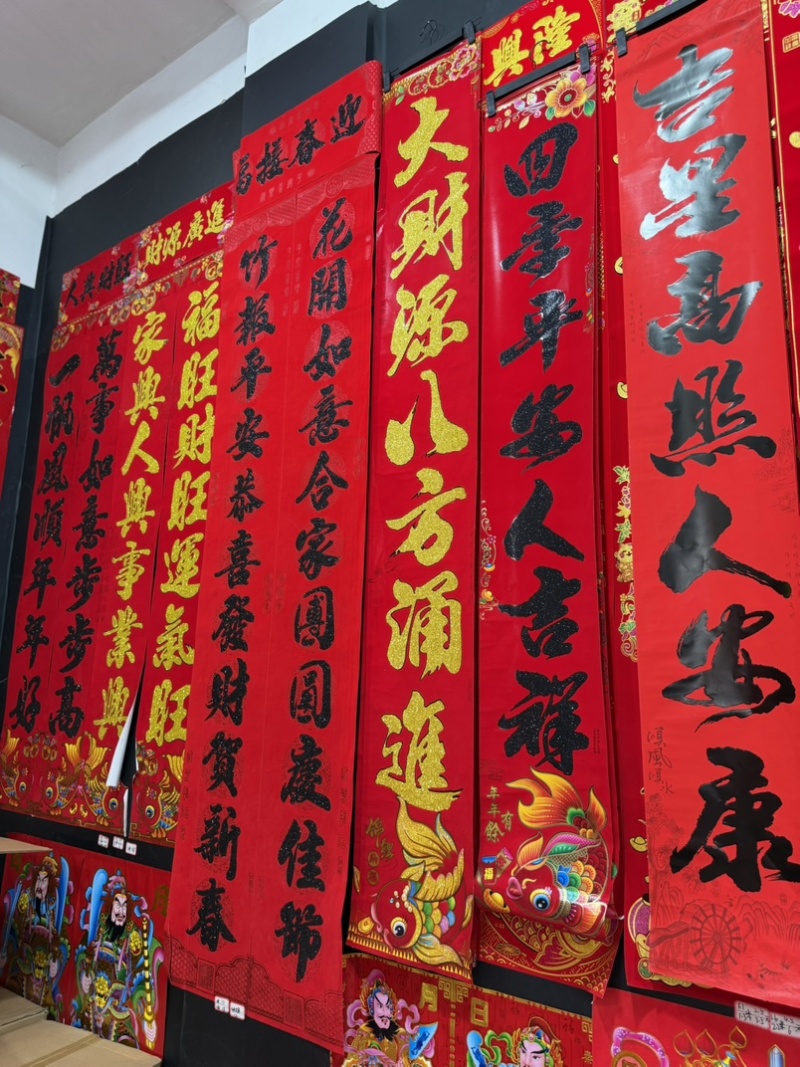 人興財旺
一帆風順年年好
萬事如意步步高
財源廣進
家興人興事業興
福旺財旺運氣旺
迎春接
竹報平安恭喜發財賀新春
花開如意合家團圓慶佳節
大財源八方涌進
興隆
四季平安人吉祥
年年有餘
吉星高照人安康
順風順水
月日